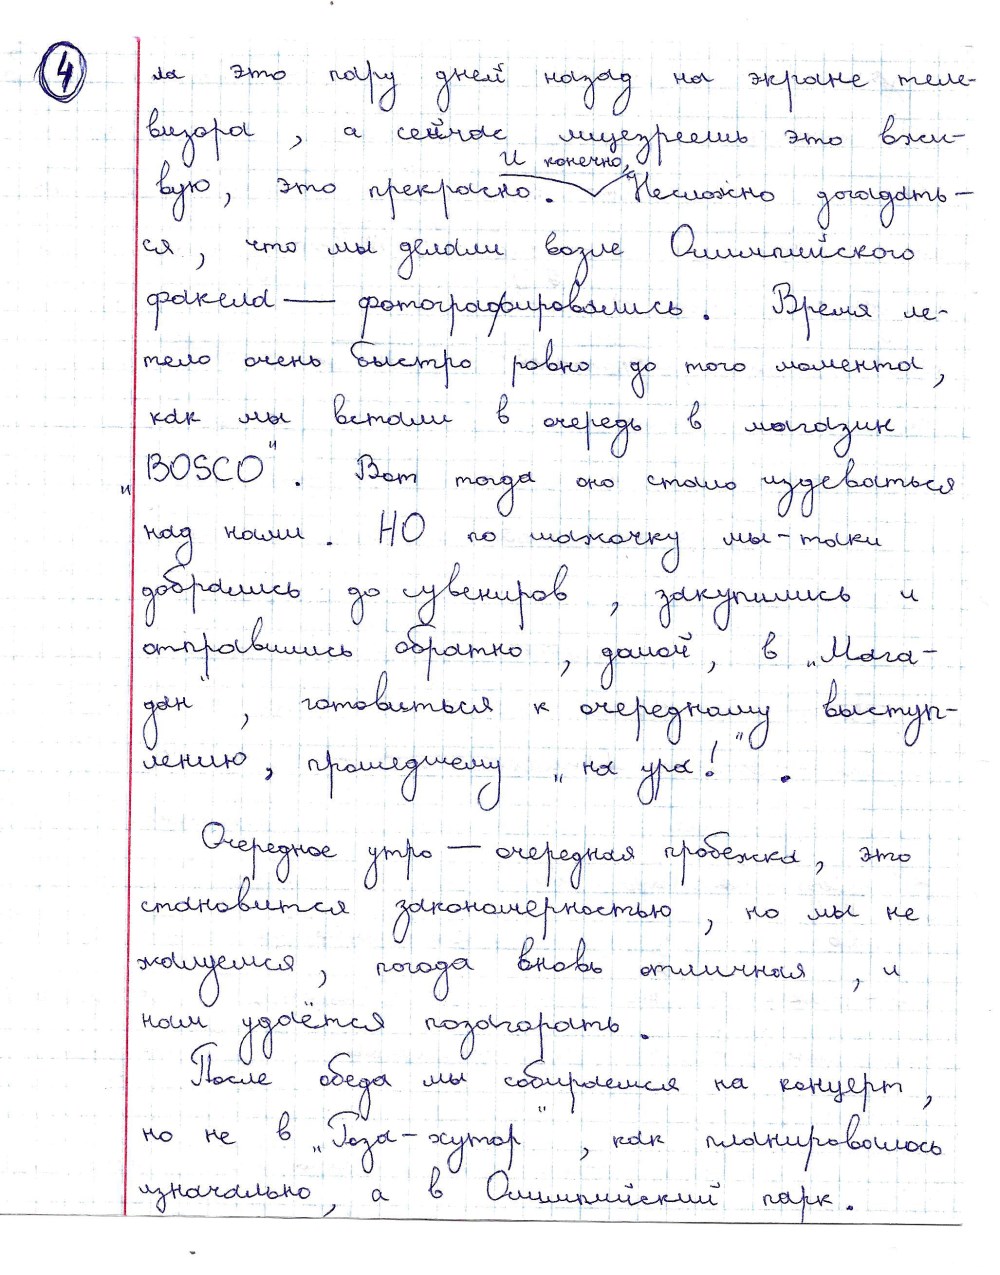 4
ла это пару дней назад на экране теле-
визора, а сейчас лицезреешь это вжи-
И конечно,
вую, это прекрасно. Несложно догадать-
ся, что мы делали возле Олимпийского
факела — фотографировались. Время ле-
тело очень быстро ровно до того момента,
как мы встали в очередь в магазин
"BOSCO". Вот тогда оно стало издеваться
над нами. НО по шажочку мы-таки
добрались до сувениров, закупились и
отправились обратно, домой, в „Мага-
дан", готовиться к очередному выступ-
лению, прошедшему „на ура!".
Очередное утро — очередная пробежка, это
становится закономерностью, но мы не
жалуемся, погода вновь отличная, и
нам удаётся позагорать.
После обеда мы собираемся на концерт,
но не в „Роза-хутор", как планировалось
изначально, а в Олимпийский парк.